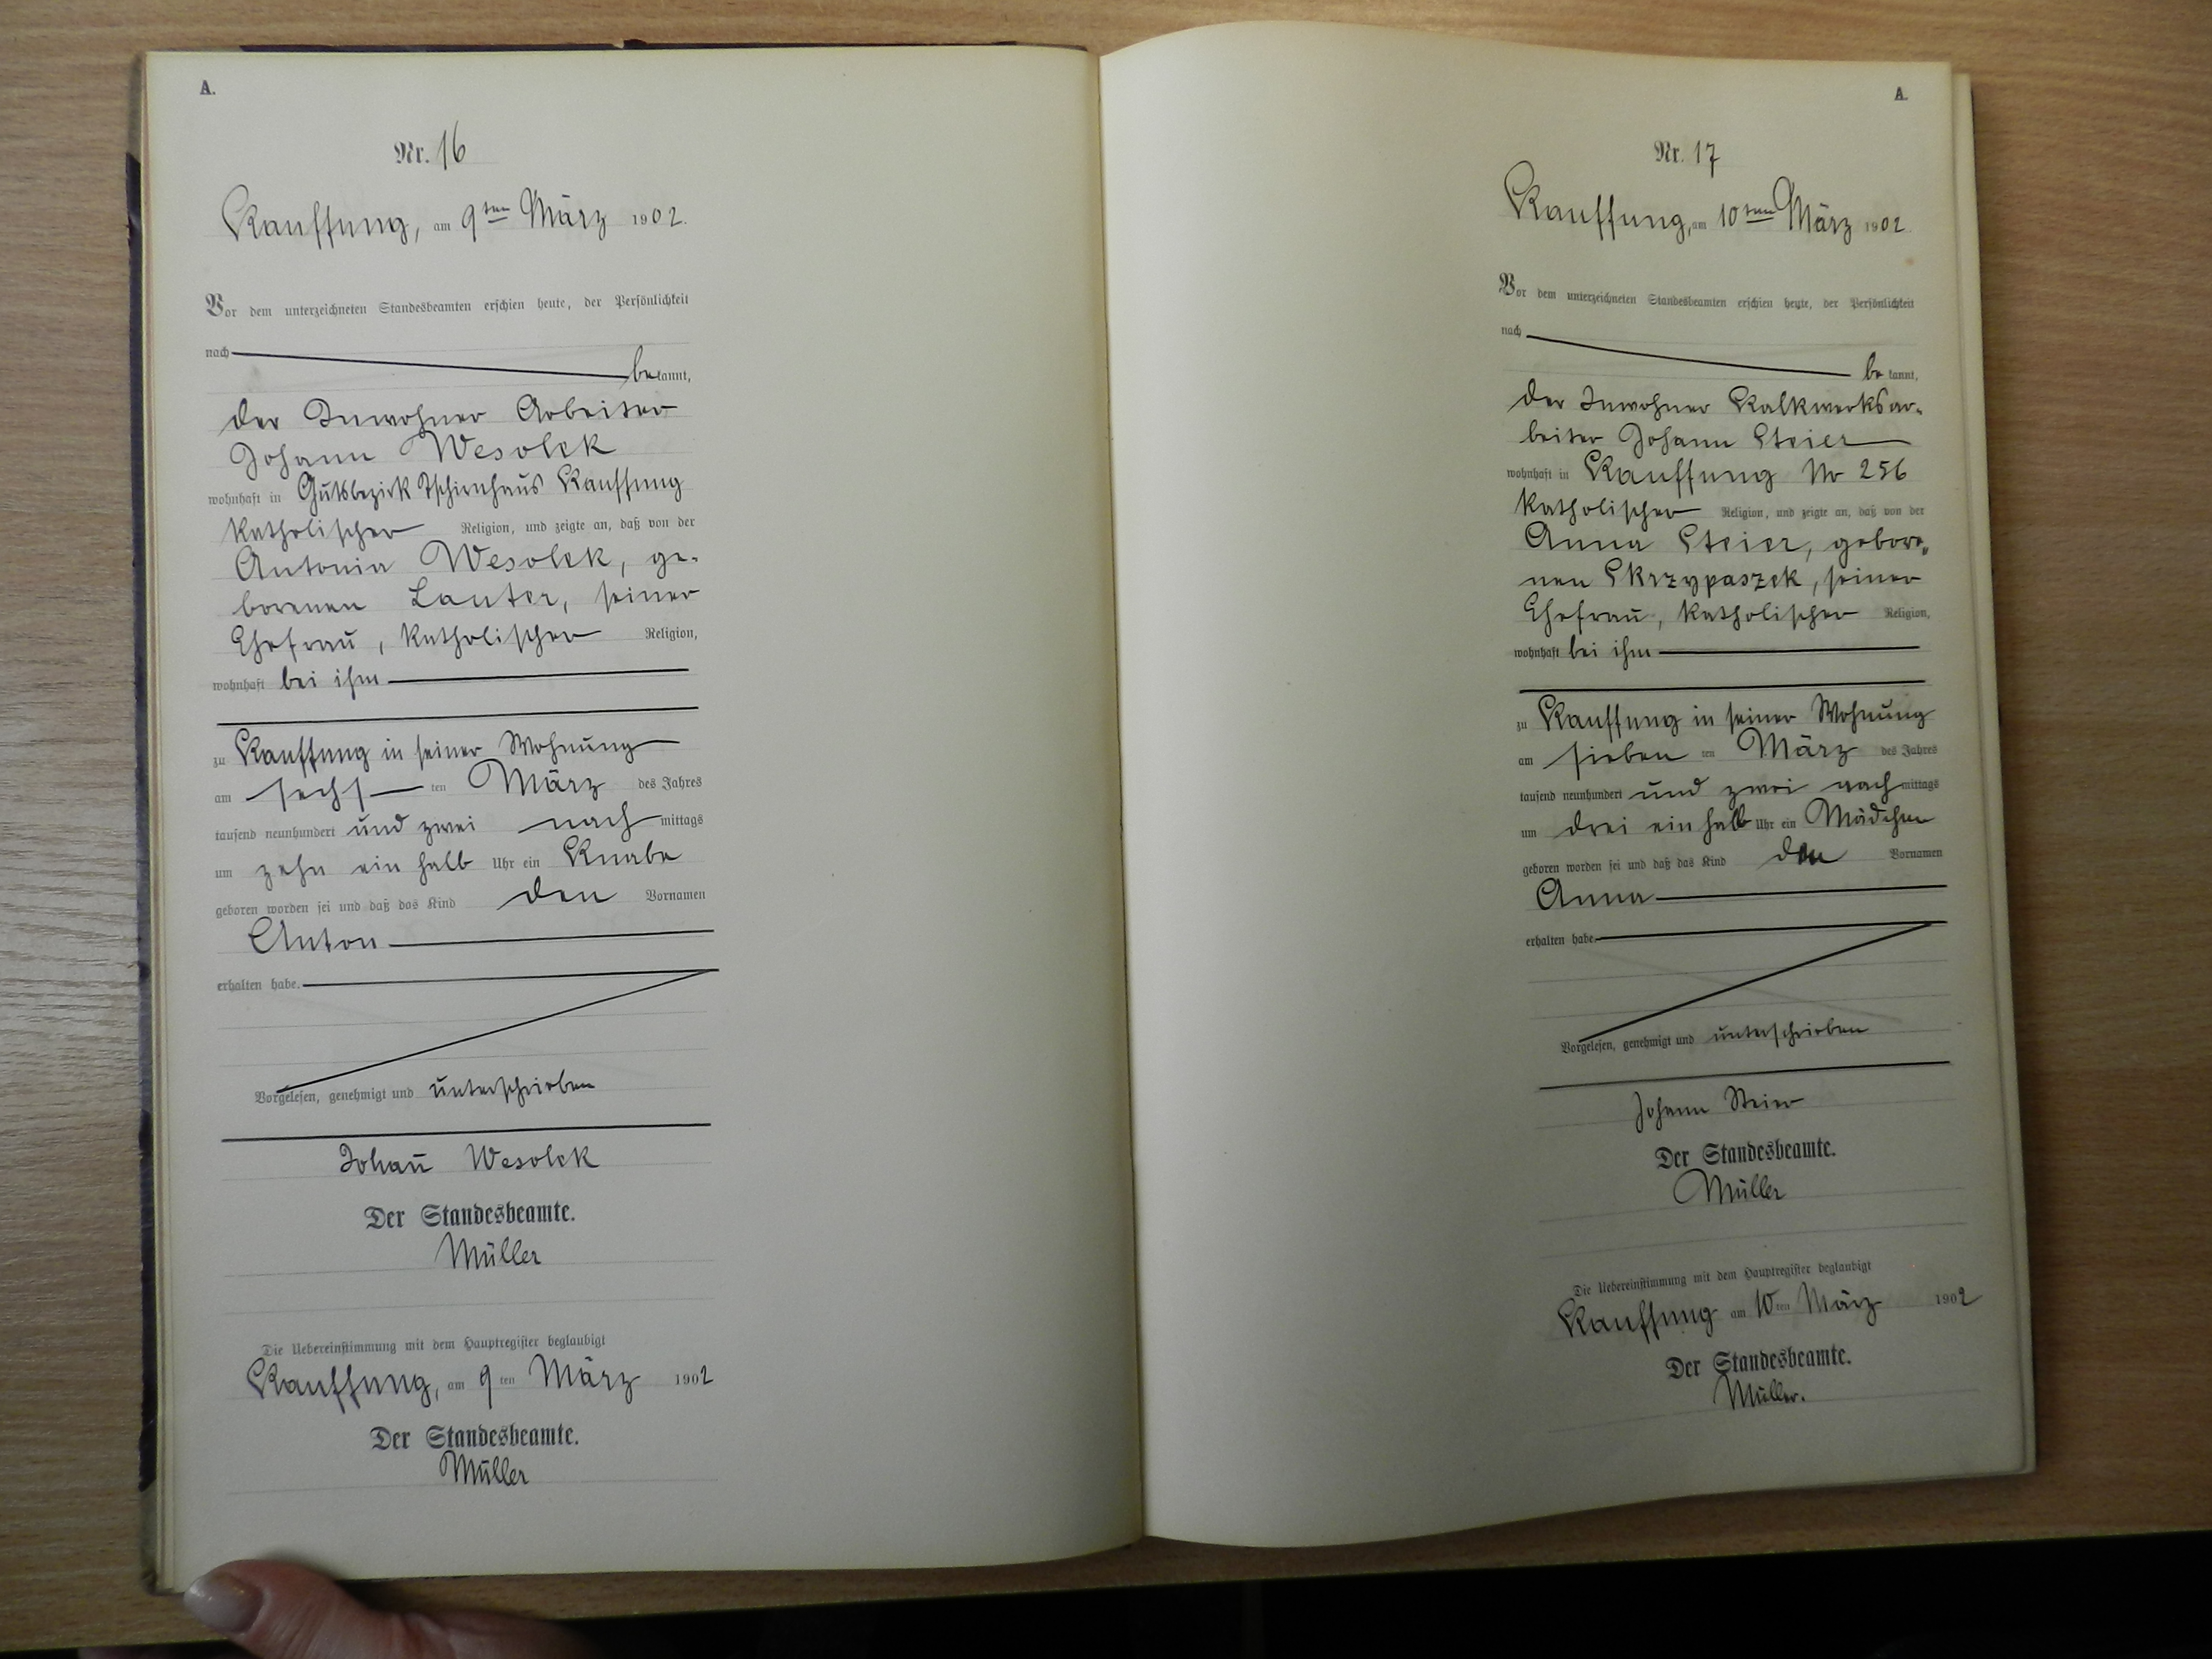 A.
Nr. 16
Kauffung, am 9ten März 1902.
Vor dem unterzeichneten Standesbeamten erschien heute, der Persönlichkeit
nach
bekannt,
der Inwohner Arbeiter
Johann Wesolek
wohnhaft in Gutsbezirk Tschirnhaus Kauffung
katholischer Religion, und zeigte an, daß von der
Antonia Wesolek, ge-
borenen Lauter, seiner
Ehefrau, katholischer Religion,
wohnhaft bei ihm
zu Kauffung in seiner Wohnung
am sechsten März des Jahres
tausend neunhundert und zwei nachmittags
um zehn ein halb Uhr ein Knabe
geboren worden sei und daß das Kind den Vornamen
Anton
erhalten habe.
Vorgelesen, genehmigt und unterschrieben
Johañ Wesolek
Der Standesbeamte.
Müller
Die Uebereinstimmung mit dem Hauptregister beglaubigt
Kauffung, am 9ten März 1902
Der Standesbeamte.
Müller
A.
Nr. 17
Kauffung, am 10ten März 1902.
Vor dem unterzeichneten Standesbeamten erschien heute, der Persönlichkeit
nach
bekannt,
der Inwohner Kalkwerksar-
beiter Johann Steier
wohnhaft in Kauffung No 256
katholischer Religion, und zeigte an, daß von der
Anna Steier, gebore-
nen Skrzypaszek, seiner
Ehefrau, katholischer Religion,
wohnhaft bei ihm
zu Kauffung in seiner Wohnung
am siebenten März des Jahres
tausend neunhundert und zwei nachmittags
um drei ein halb Uhr ein Mädchen
geboren worden sei und daß das Kind den Vornamen
Anna
erhalten habe
Vorgelesen, genehmigt und unterschrieben
Johann Steier
Der Standesbeamte.
Müller
Die Uebereinstimmung mit dem Hauptregister beglaubigt
Kauffung am 10ten März 1902
Der Standesbeamte.
Müller.